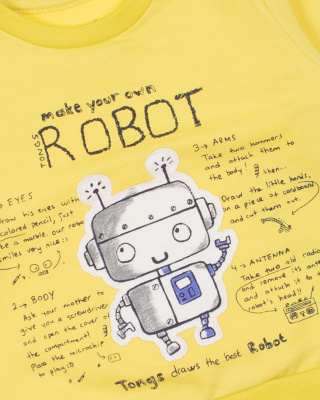 make your own
TONGS
ROBOT
EYES
his eyes with
colored pencil, just
be a marble. our robot
smiles very nice :)
2→ BODY
Ask your mother to
give you a screwdriver
and open the cover of
the compartment.
Pass the microchip
to play :))
3→ ARMS
Take two hammers
and attach them to
the body! then...
Draw the little hands,
on a piece of cardboard
and cut them out.
4→ ANTENNA
Take two old radio
and remove its
and attach it to
robot's head!
Tongs draws the best Robot